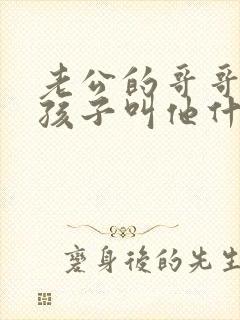 老公的哥哥
孩子叫他什
褒身後的先生